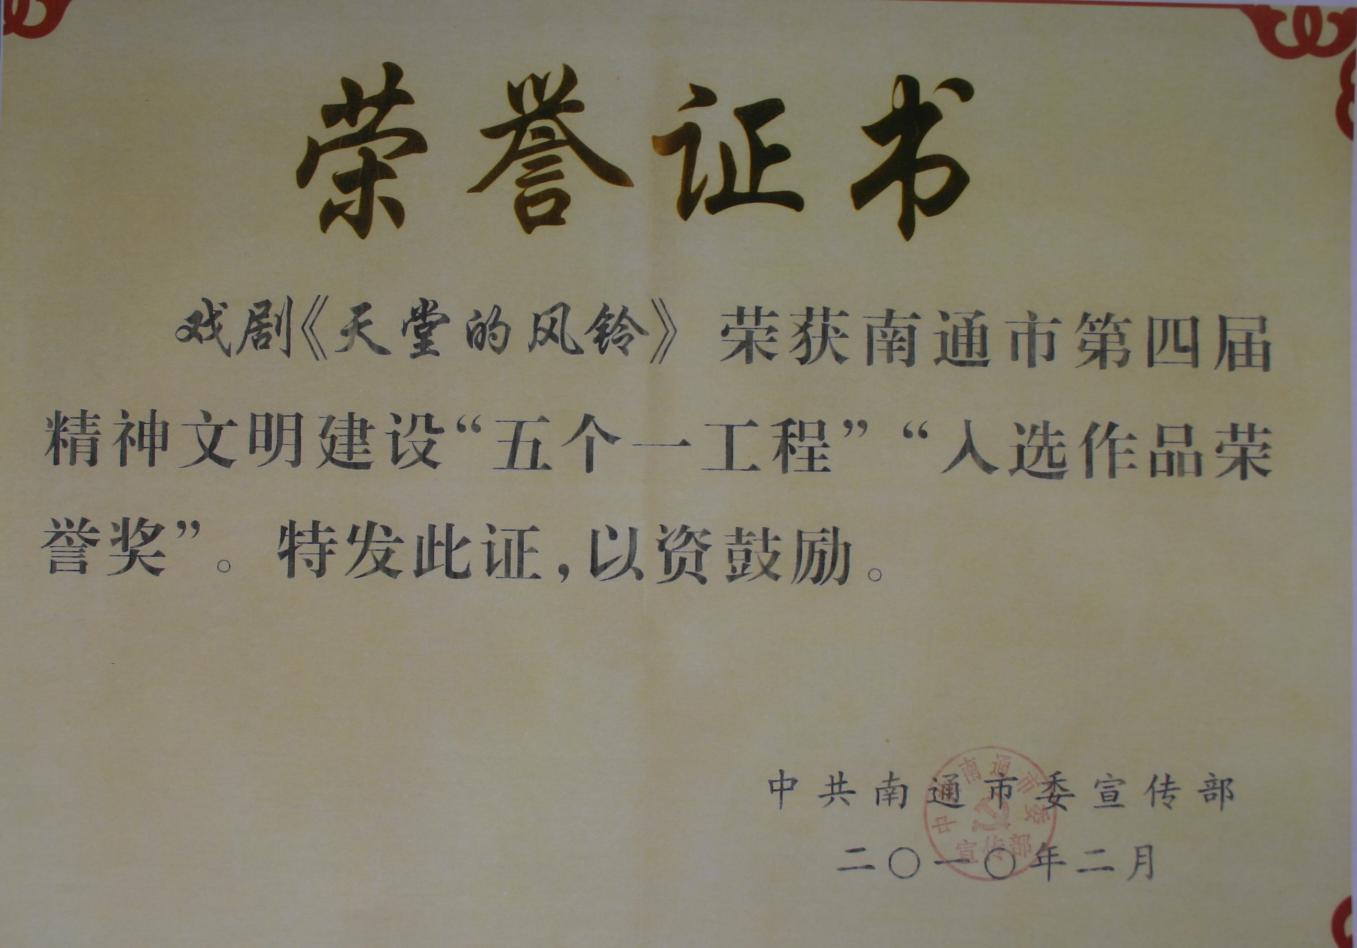 荣誉证书
戏剧《天堂的风铃》荣获南通市第四届
精神文明建设“五个一工程”“入选作品荣
誉奖”。特发此证，以资鼓励。
中共南通市委宣传部
二〇一〇年二月
中共南通市委
宣传部